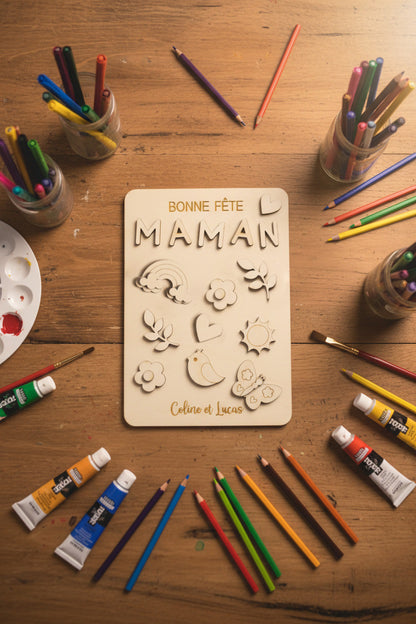 BONNE FÊTE
MAMAN
Celine et Lucas